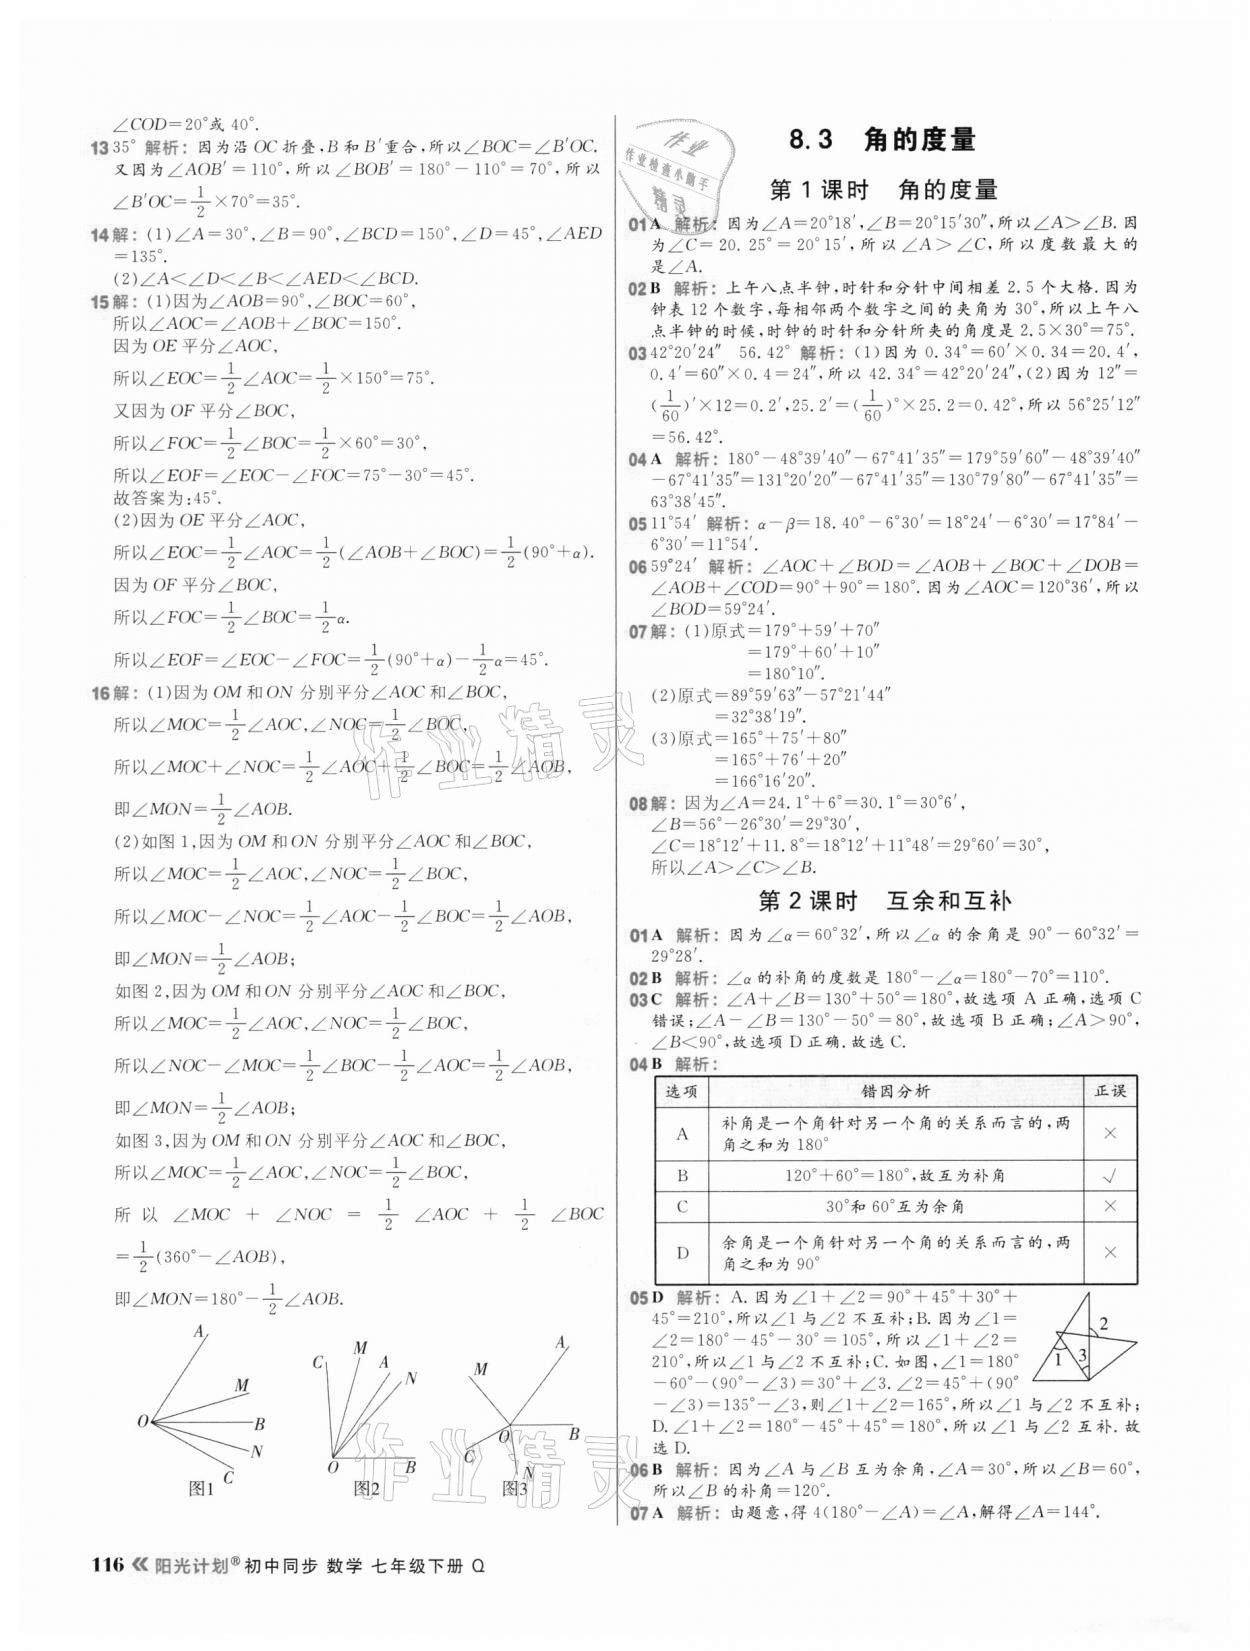 ∠COD=20°或 40°.
13 35° 解析：因为沿 OC 折叠,B 和 B′重合,所以∠BOC=∠B′OC.
又因为∠AOB′=110°,所以∠BOB′=180°-110°=70°,所以
∠B′OC=1/2×70°=35°.
14 解：(1)∠A=30°,∠B=90°,∠BCD=150°,∠D=45°,∠AED
=135°.
(2)∠A<∠D<∠B<∠AED<∠BCD.
15 解：(1)因为∠AOB=90°,∠BOC=60°,
所以∠AOC=∠AOB+∠BOC=150°.
因为 OE 平分∠AOC,
所以∠EOC=1/2∠AOC=1/2×150°=75°.
又因为 OF 平分∠BOC,
所以∠FOC=1/2∠BOC=1/2×60°=30°,
所以∠EOF=∠EOC-∠FOC=75°-30°=45°.
故答案为:45°.
(2)因为 OE 平分∠AOC,
所以∠EOC=1/2∠AOC=1/2(∠AOB+∠BOC)=1/2(90°+α).
因为 OF 平分∠BOC,
所以∠FOC=1/2∠BOC=1/2α.
所以∠EOF=∠EOC-∠FOC=1/2(90°+α)-1/2α=45°.
16 解：(1)因为 OM 和 ON 分别平分∠AOC 和∠BOC,
所以∠MOC=1/2∠AOC,∠NOC=1/2∠BOC,
所以∠MOC+∠NOC=1/2∠AOC+1/2∠BOC=1/2∠AOB,
即∠MON=1/2∠AOB.
(2)如图 1,因为 OM 和 ON 分别平分∠AOC 和∠BOC,
所以∠MOC=1/2∠AOC,∠NOC=1/2∠BOC,
所以∠MOC-∠NOC=1/2∠AOC-1/2∠BOC=1/2∠AOB,
即∠MON=1/2∠AOB;
如图 2,因为 OM 和 ON 分别平分∠AOC 和∠BOC,
所以∠MOC=1/2∠AOC,∠NOC=1/2∠BOC,
所以∠NOC-∠MOC=1/2∠BOC-1/2∠AOC=1/2∠AOB,
即∠MON=1/2∠AOB;
如图 3,因为 OM 和 ON 分别平分∠AOC 和∠BOC,
所以∠MOC=1/2∠AOC,∠NOC=1/2∠BOC,
所以 ∠MOC + ∠NOC = 1/2 ∠AOC + 1/2 ∠BOC
=1/2(360°-∠AOB),
即∠MON=180°-1/2∠AOB.
A M O B N C 图1
C M A N O B 图2
M A O B C N 图3
8.3 角的度量
第 1 课时 角的度量
01 A 解析：因为∠A=20°18′,∠B=20°15′30″,所以∠A>∠B.因
为∠C=20.25°=20°15′,所以∠A>∠C,所以度数最大的
是∠A.
02 B 解析：上午八点半钟,时针和分针中间相差 2.5 个大格.因为
钟表 12 个数字,每相邻两个数字之间的夹角为 30°,所以上午八
点半钟的时候,时钟的时针和分针所夹的角度是 2.5×30°=75°.
03 42°20′24″ 56.42° 解析：(1)因为 0.34°=60′×0.34=20.4′,
0.4′=60″×0.4=24″,所以 42.34°=42°20′24″,(2)因为 12″=
(1/60)′×12=0.2′,25.2′=(1/60)°×25.2=0.42°,所以 56°25′12″
=56.42°.
04 A 解析：180°-48°39′40″-67°41′35″=179°59′60″-48°39′40″
-67°41′35″=131°20′20″-67°41′35″=130°79′80″-67°41′35″=
63°38′45″.
05 11°54′ 解析：α-β=18.40°-6°30′=18°24′-6°30′=17°84′-
6°30′=11°54′.
06 59°24′ 解析：∠AOC+∠BOD=∠AOB+∠BOC+∠DOB=
∠AOB+∠COD=90°+90°=180°.因为∠AOC=120°36′,所以
∠BOD=59°24′.
07 解：(1)原式=179°+59′+70″
=179°+60′+10″
=180°10″.
(2)原式=89°59′63″-57°21′44″
=32°38′19″.
(3)原式=165°+75′+80″
=165°+76′+20″
=166°16′20″.
08 解：因为∠A=24.1°+6°=30.1°=30°6′,
∠B=56°-26°30′=29°30′,
∠C=18°12′+11.8°=18°12′+11°48′=29°60′=30°,
所以∠A>∠C>∠B.
第 2 课时 互余和互补
01 A 解析：因为∠α=60°32′,所以∠α 的余角是 90°-60°32′=
29°28′.
02 B 解析：∠α 的补角的度数是 180°-∠α=180°-70°=110°.
03 C 解析：∠A+∠B=130°+50°=180°,故选项 A 正确,选项 C
错误;∠A-∠B=130°-50°=80°,故选项 B 正确;∠A>90°,
∠B<90°,故选项 D 正确.故选 C.
04 B 解析：
选项 错因分析 正误
A 补角是一个角针对另一个角的关系而言的,两
角之和为 180° ×
B 120°+60°=180°,故互为补角 √
C 30°和 60°互为余角 ×
D 余角是一个角针对另一个角的关系而言的,两
角之和为 90° ×
05 D 解析：A.因为∠1+∠2=90°+45°+30°+
45°=210°,所以∠1 与∠2 不互补;B.因为∠1=
∠2=180°-45°-30°=105°,所以∠1+∠2=
210°,所以∠1 与∠2 不互补;C.如图,∠1=180°
-60°-(90°-∠3)=30°+∠3.∠2=45°+(90°
-∠3)=135°-∠3,则∠1+∠2=165°,所以∠1 与∠2 不互补;
D.∠1+∠2=180°-45°+45°=180°,所以∠1 与∠2 互补.故
选 D.
2
1 3
06 B 解析：因为∠A 与∠B 互为余角,∠A=30°,所以∠B=60°,
所以∠B 的补角=120°.
07 A 解析：由题意,得 4(180°-∠A)=∠A,解得∠A=144°.
116 《 阳光计划® 初中同步 数学 七年级下册 Q
作业
作业检查小助手
精灵
作业精灵
作业精灵